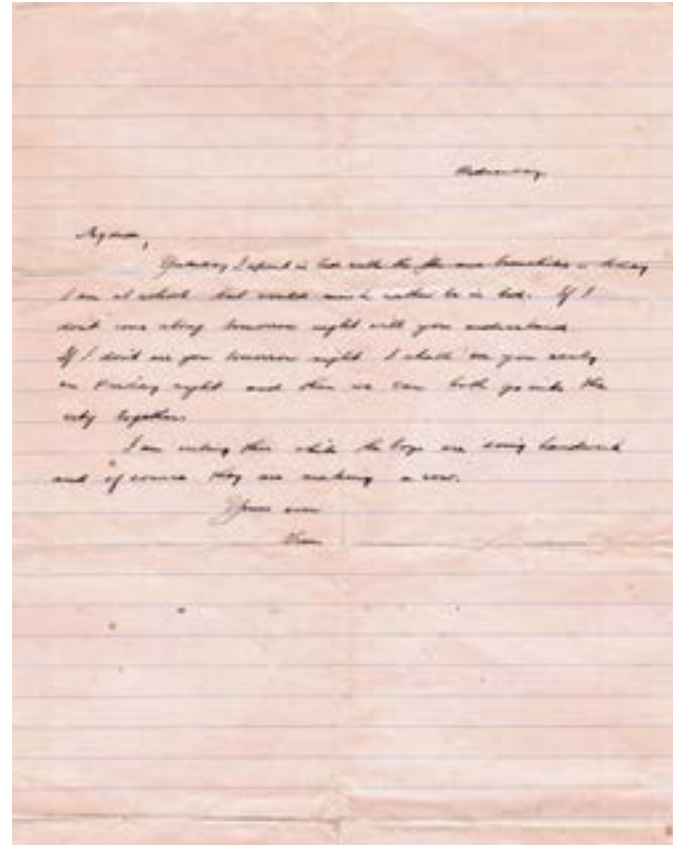 Wednesday
My dear,
Yesterday I spent in bed with the flu and bronchitis - today
I am at school but would much rather be in bed. If I
don't come along tomorrow night will you understand
If I don't see you tomorrow night I shall see you early
on Friday night and then we can both go into the
city together.
I am writing this while the boys are doing handwork
and of course they are making a row.
Yours ever